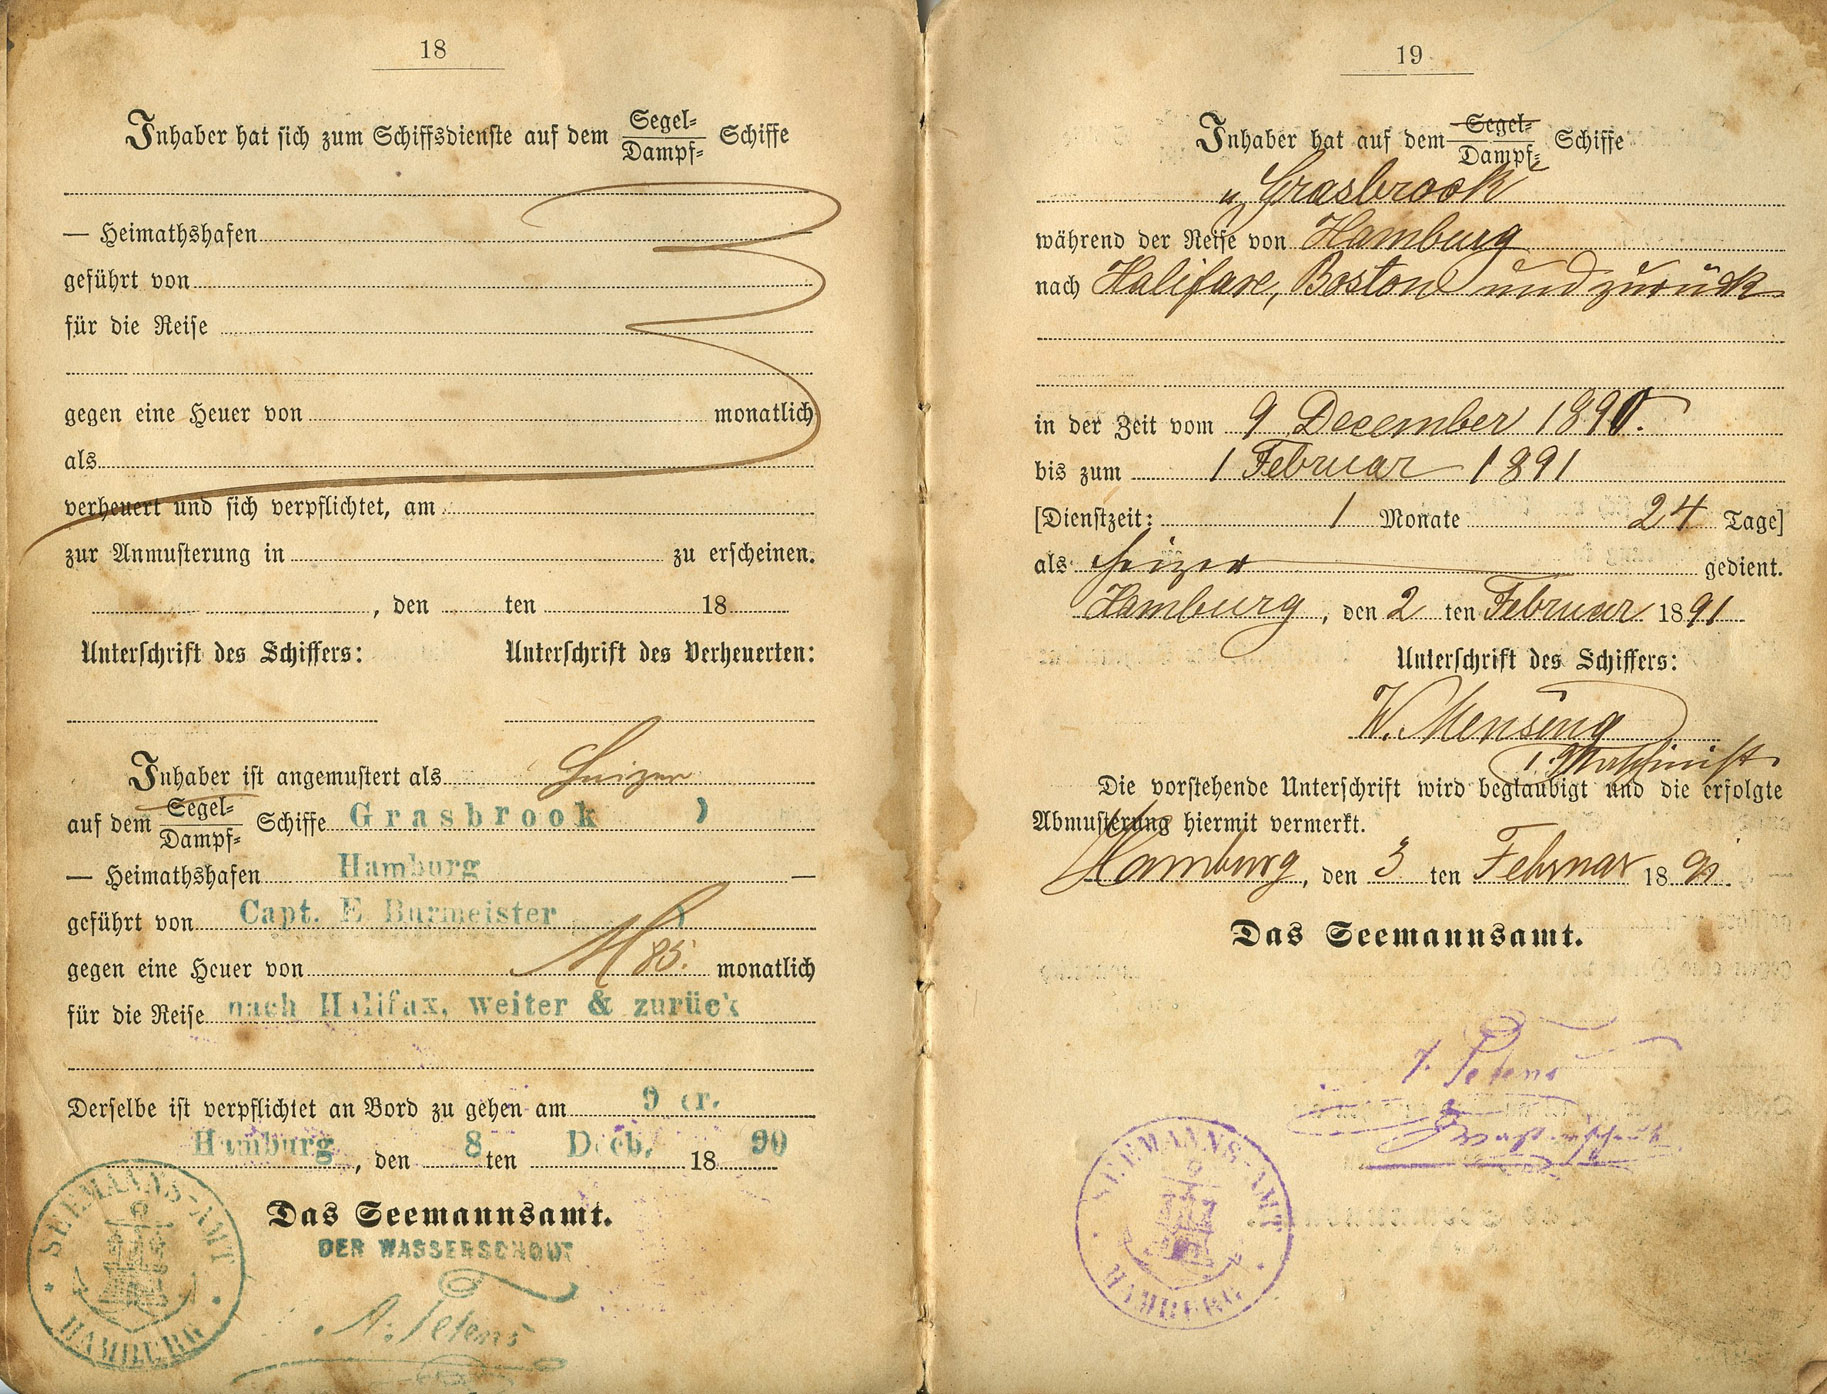 18
Inhaber hat sich zum Schiffsdienste auf dem Segel-/Dampf- Schiffe
— Heimathshafen
geführt von
für die Reise
gegen eine Heuer von monatlich
als
verheuert und sich verpflichtet, am
zur Anmusterung in zu erscheinen.
, den ten 18
Unterschrift des Schiffers: Unterschrift des Verheuerten:
Inhaber ist angemustert als Heizer
auf dem Segel-/Dampf- Schiffe Grasbrook
— Heimathshafen Hamburg —
geführt von Capt. E Burmeister
gegen eine Heuer von M 85. monatlich
für die Reise nach Halifax, weiter & zurück
Derselbe ist verpflichtet an Bord zu gehen am 9 cr.
Hamburg, den 8 ten Decb. 18 90
Das Seemannsamt.
DER WASSERSCHOUT
A. Tetens
SEEMANNS-AMT HAMBURG
19
Inhaber hat auf dem Segel-/Dampf- Schiffe
„Grasbrook"
während der Reise von Hamburg
nach Halifax, Boston und zurück
in der Zeit vom 9 December 1890.
bis zum 1 Februar 1891
[Dienstzeit: 1 Monate 24 Tage]
als Heizer gedient.
Hamburg, den 2 ten Februar 1891
Unterschrift des Schiffers:
W. Mensing
1. Maschinist.
Die vorstehende Unterschrift wird beglaubigt und die erfolgte
Abmusterung hiermit vermerkt.
Hamburg, den 3 ten Februar 18 91.
Das Seemannsamt.
Tetens
Wasserschout
SEEMANNS-AMT HAMBURG